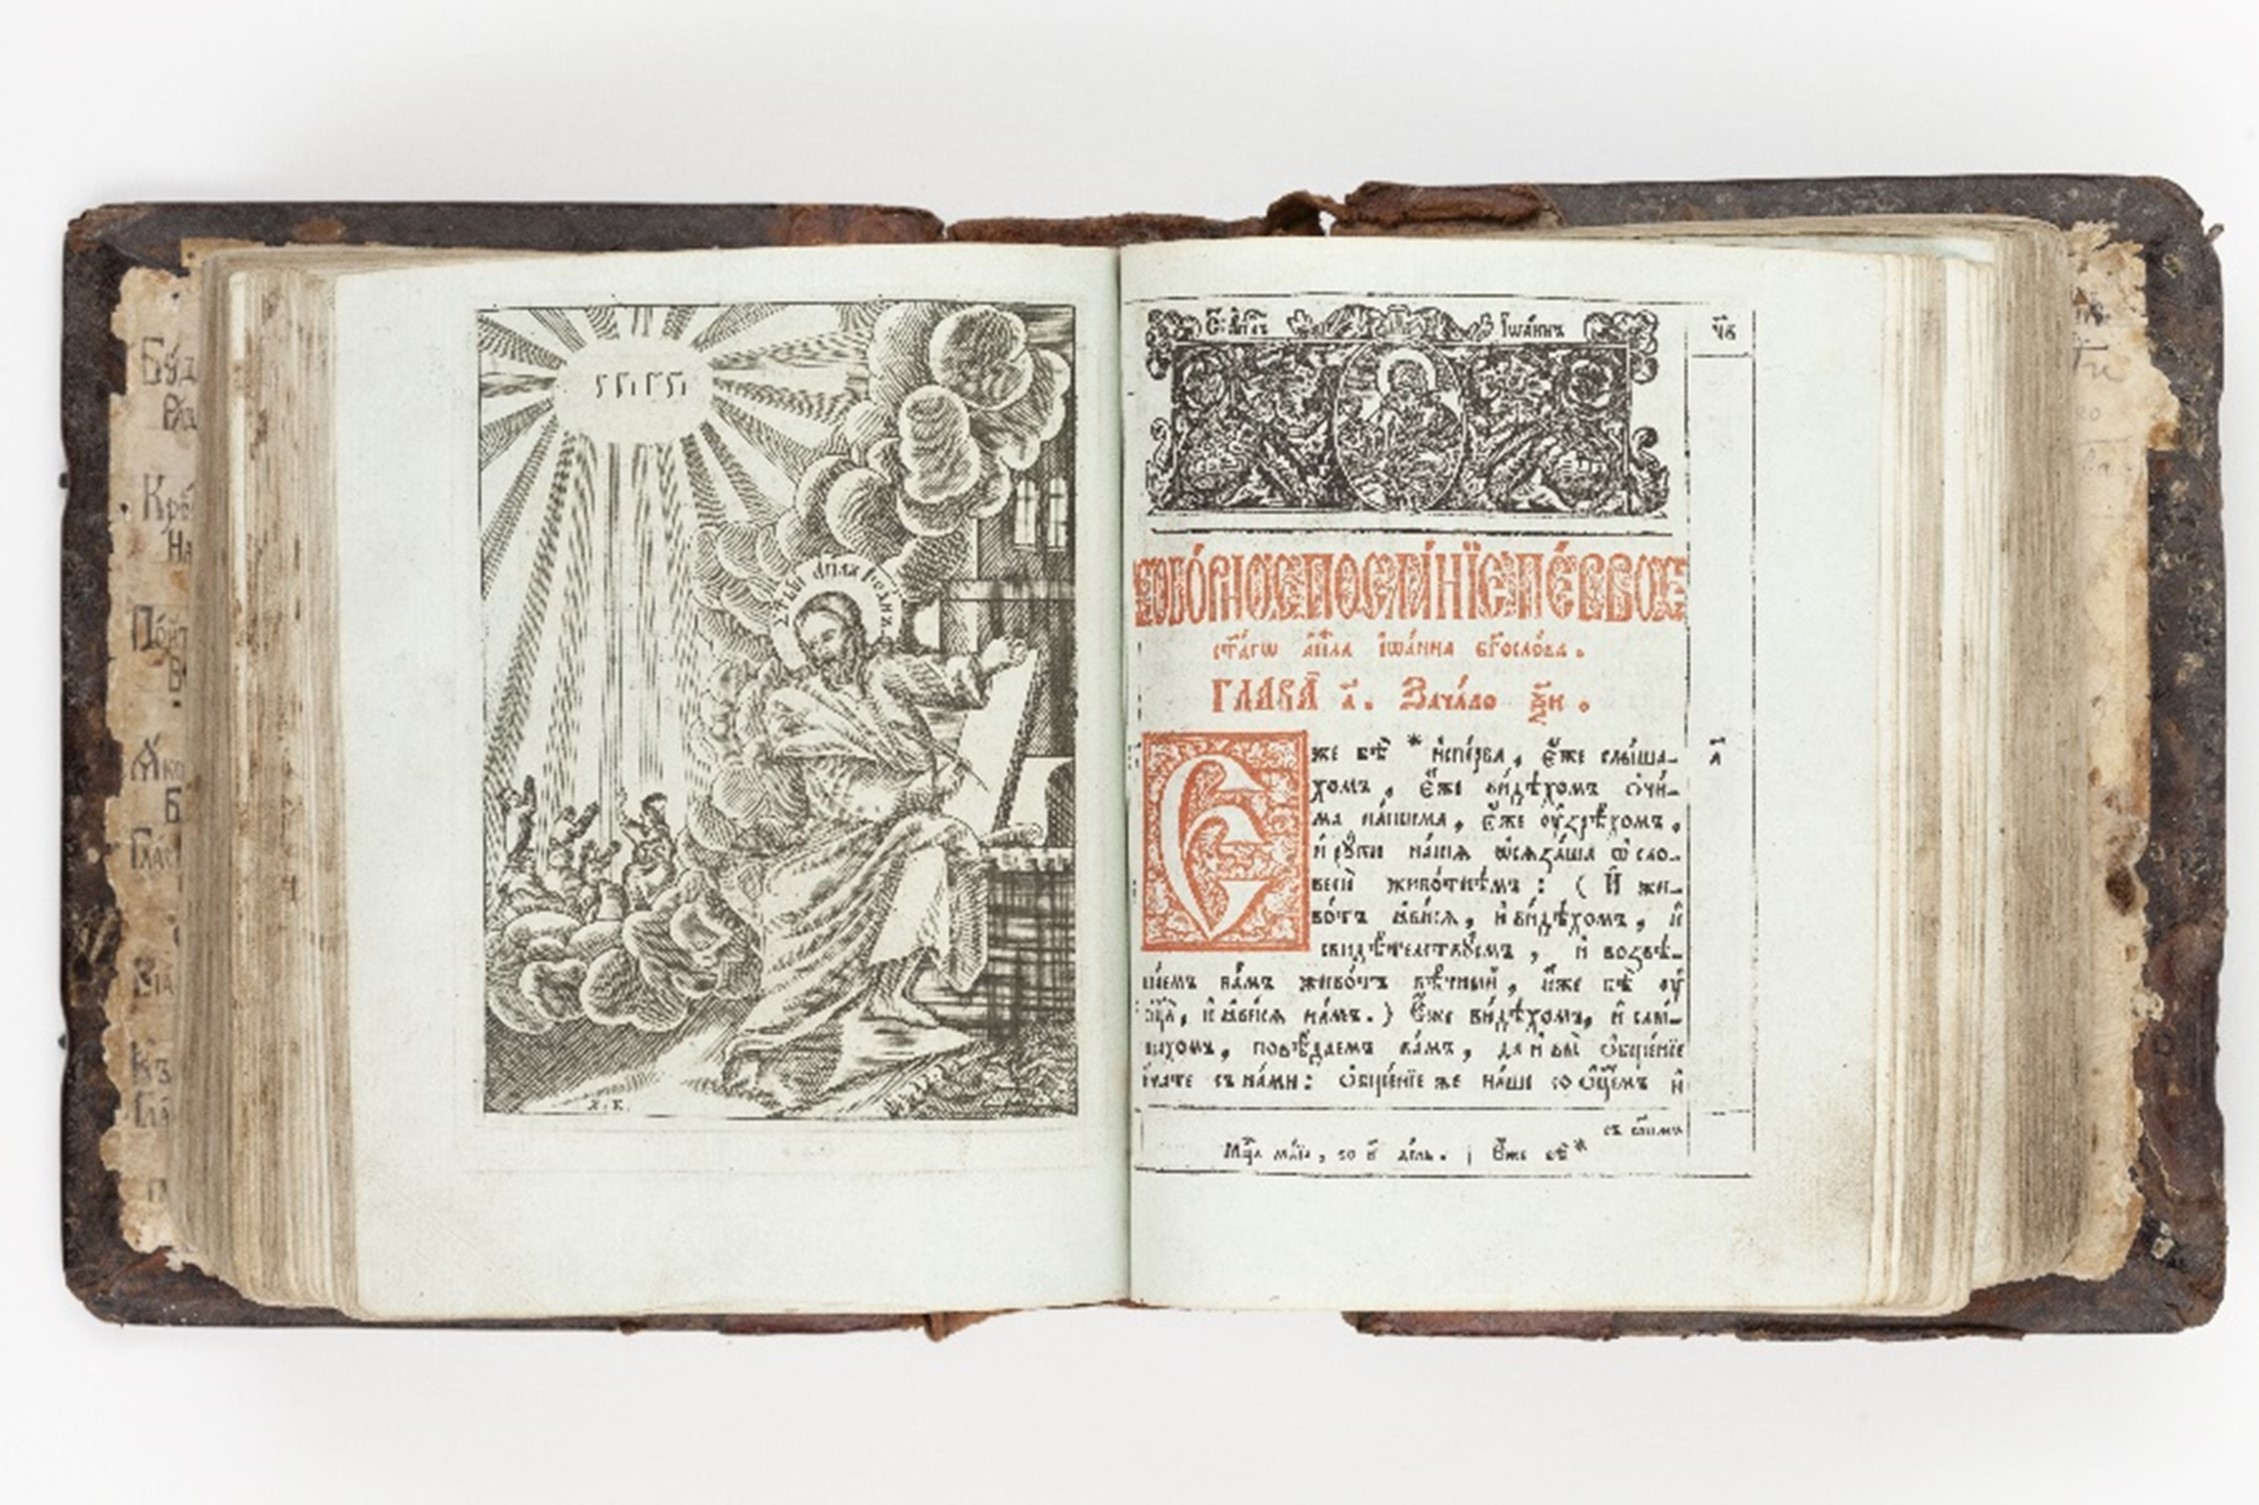 Бꙋ́д
Крⷭ҇
На
Глас
Въ
ст҃ы́й а҆пⷭ҇лъ і҆ѡа́ннъ
С: А҆пⷭ҇лъ І҆ѡа́ннъ
ч҃в
СОБО́РНОЕ ПОСЛА́НЇЕ ПЕ́РВОЕ
ст҃а́гѡ а҆пⷭ҇ла і҆ѡа́нна бг҃осло́ва.
ГЛАВА̀ а҃. Зача́ло ѯ҃и.
Е҆́же бѣ̀ * и҆спе́рва, є҆́же слы́ша-
а҃
хомъ, є҆́же ви́дѣхомъ ѻ҆чи́-
ма на́шима, є҆́же ᲂу҆зрѣ́хомъ,
и҆ рꙋ́ки на́шѧ ѡ҆сѧза́ша ѡ҆ сло-
весѝ живо́тнѣмъ: ( И҆ жи-
во́тъ ꙗ҆ви́сѧ, и҆ ви́дѣхомъ, и҆
свидѣ́телствꙋемъ, и҆ возвѣ-
ща́емъ ва́мъ живо́тъ вѣ́чный, и҆́же бѣ̀ ᲂу҆
ѻ҆ц҃а̀, и҆ ꙗ҆ви́сѧ на́мъ.) Е҆́же ви́дѣхомъ, и҆ слы́-
шахомъ, повѣ́даемъ ва́мъ, да и҆ вы̀ ѻ҆бще́нїе
и҆́мате съ на́ми: ѻ҆бще́нїе же на́ше со ѻ҆ц҃е́мъ и҆
съ сн҃омъ
Мцⷭ҇а ма́їа, во и҃ де́нь. | Е҆́же бѣ̀ *